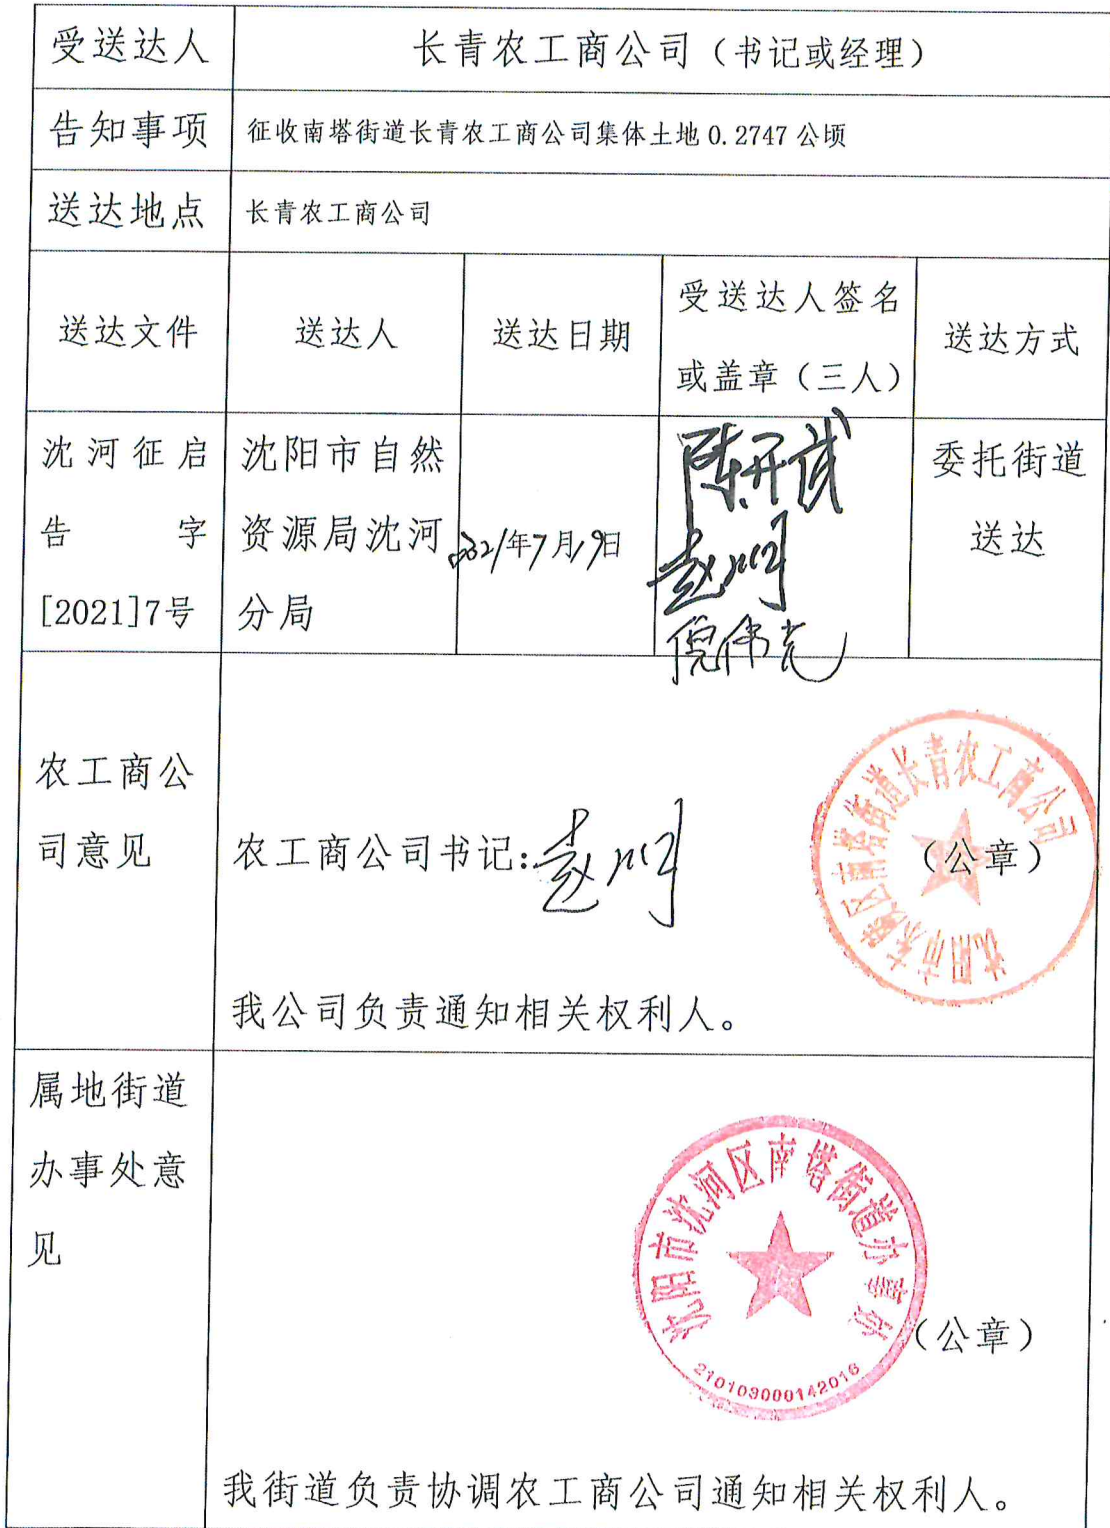 受送达人
长青农工商公司（书记或经理）
告知事项
征收南塔街道长青农工商公司集体土地 0.2747 公顷
送达地点
长青农工商公司
送达文件
送达人
送达日期
受送达人签名
或盖章（三人）
送达方式
沈河征启
告 字
[2021]7号
沈阳市自然
资源局沈河
分局
2021年7月19日
陈开武
赵明
倪伟克
委托街道
送达
农工商公
司意见
农工商公司书记:赵明
（公章）
沈阳市东陵区南塔街道长青农工商公司
我公司负责通知相关权利人。
属地街道
办事处意
见
沈阳市沈河区南塔街道办事处
210103000142016
（公章）
我街道负责协调农工商公司通知相关权利人。